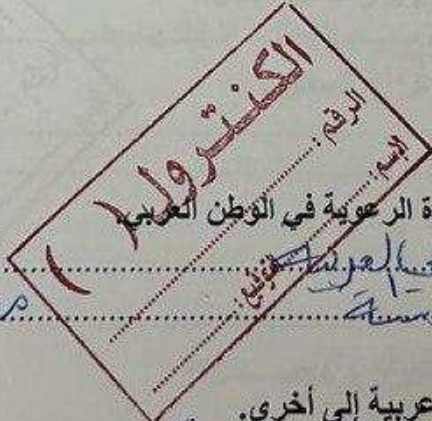 الكنترول ( )
الرقم :
الاسم :
التوقيع :
ة الرعوية في الوطن العربي.
عربية إلى أخرى.